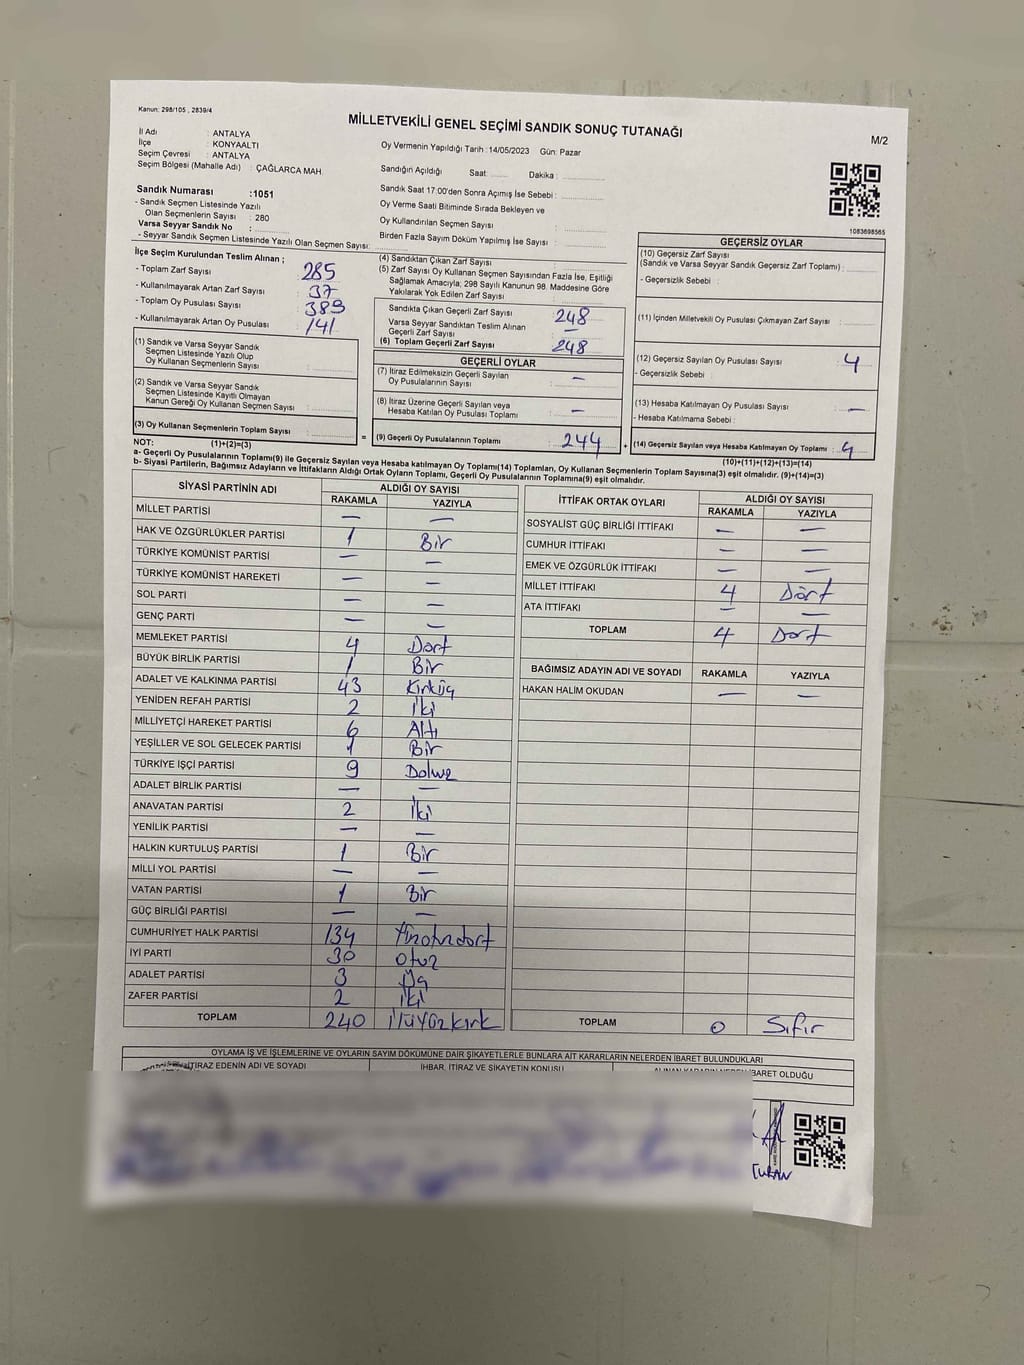 Kanun: 298/105 , 2839/4
MİLLETVEKİLİ GENEL SEÇİMİ SANDIK SONUÇ TUTANAĞI
M/2
İl Adı : ANTALYA
İlçe : KONYAALTI
Seçim Çevresi : ANTALYA
Seçim Bölgesi (Mahalle Adı) : ÇAĞLARCA MAH.
Oy Vermenin Yapıldığı Tarih :14/05/2023 Gün: Pazar
Sandığın Açıldığı Saat: ........ Dakika : ............
Sandık Saat 17:00'den Sonra Açımış İse Sebebi : ............
Oy Verme Saati Bitiminde Sırada Bekleyen ve
Oy Kullandırılan Seçmen Sayısı : ............
Birden Fazla Sayım Döküm Yapılmış İse Sayısı : ............
Sandık Numarası :1051
- Sandık Seçmen Listesinde Yazılı
Olan Seçmenlerin Sayısı : 280
Varsa Seyyar Sandık No : ............
- Seyyar Sandık Seçmen Listesinde Yazılı Olan Seçmen Sayısı: ............
1083698565
İlçe Seçim Kurulundan Teslim Alınan ;
- Toplam Zarf Sayısı : 285
- Kullanılmayarak Artan Zarf Sayısı : 37
- Toplam Oy Pusulası Sayısı : 389
- Kullanılmayarak Artan Oy Pusulası : 141
(1) Sandık ve Varsa Seyyar Sandık
Seçmen Listesinde Yazılı Olup
Oy Kullanan Seçmenlerin Sayısı : ............
(2) Sandık ve Varsa Seyyar Sandık
Seçmen Listesinde Kayıtlı Olmayan
Kanun Gereği Oy Kullanan Seçmen Sayısı : ............
(3) Oy Kullanan Seçmenlerin Toplam Sayısı : ............
(1)+(2)=(3)
(4) Sandıktan Çıkan Zarf Sayısı : ............
(5) Zarf Sayısı Oy Kullanan Seçmen Sayısından Fazla İse, Eşitliği
Sağlamak Amacıyla; 298 Sayılı Kanunun 98. Maddesine Göre
Yakılarak Yok Edilen Zarf Sayısı : ............
Sandıkta Çıkan Geçerli Zarf Sayısı : 248
Varsa Seyyar Sandıktan Teslim Alınan
Geçerli Zarf Sayısı : —
(6) Toplam Geçerli Zarf Sayısı : 248
GEÇERLİ OYLAR
(7) İtiraz Edilmeksizin Geçerli Sayılan
Oy Pusulalarının Sayısı : —
(8) İtiraz Üzerine Geçerli Sayılan veya
Hesaba Katılan Oy Pusulası Toplamı : —
= (9) Geçerli Oy Pusulalarının Toplamı : 244 +
GEÇERSİZ OYLAR
(10) Geçersiz Zarf Sayısı
(Sandık ve Varsa Seyyar Sandık Geçersiz Zarf Toplamı) : ............
- Geçersizlik Sebebi :
(11) İçinden Milletvekili Oy Pusulası Çıkmayan Zarf Sayısı : ............
(12) Geçersiz Sayılan Oy Pusulası Sayısı : 4
- Geçersizlik Sebebi :
(13) Hesaba Katılmayan Oy Pusulası Sayısı : —
- Hesaba Katılmama Sebebi :
(14) Geçersiz Sayılan veya Hesaba Katılmayan Oy Toplamı : 4
(10)+(11)+(12)+(13)=(14)
NOT:
a- Geçerli Oy Pusulalarının Toplamı(9) ile Geçersiz Sayılan veya Hesaba katılmayan Oy Toplamı(14) Toplamları, Oy Kullanan Seçmenlerin Toplam Sayısına(3) eşit olmalıdır. (9)+(14)=(3)
b- Siyasi Partilerin, Bağımsız Adayların ve İttifakların Aldığı Ortak Oyların Toplamı, Geçerli Oy Pusulalarının Toplamına(9) eşit olmalıdır.
SİYASİ PARTİNİN ADI ALDIĞI OY SAYISI
RAKAMLA YAZIYLA
MİLLET PARTİSİ — —
HAK VE ÖZGÜRLÜKLER PARTİSİ 1 Bir
TÜRKİYE KOMÜNİST PARTİSİ — —
TÜRKİYE KOMÜNİST HAREKETİ — —
SOL PARTİ — —
GENÇ PARTİ — —
MEMLEKET PARTİSİ 4 Dört
BÜYÜK BİRLİK PARTİSİ 1 Bir
ADALET VE KALKINMA PARTİSİ 43 Kırküç
YENİDEN REFAH PARTİSİ 2 İki
MİLLİYETÇİ HAREKET PARTİSİ 6 Altı
YEŞİLLER VE SOL GELECEK PARTİSİ 1 Bir
TÜRKİYE İŞÇİ PARTİSİ 9 Dokuz
ADALET BİRLİK PARTİSİ — —
ANAVATAN PARTİSİ 2 İki
YENİLİK PARTİSİ — —
HALKIN KURTULUŞ PARTİSİ 1 Bir
MİLLİ YOL PARTİSİ — —
VATAN PARTİSİ 1 Bir
GÜÇ BİRLİĞİ PARTİSİ — —
CUMHURİYET HALK PARTİSİ 134 Yüzotuzdört
İYİ PARTİ 30 Otuz
ADALET PARTİSİ 3 Üç
ZAFER PARTİSİ 2 İki
TOPLAM 240 İkiyüzkırk
İTTİFAK ORTAK OYLARI ALDIĞI OY SAYISI
RAKAMLA YAZIYLA
SOSYALİST GÜÇ BİRLİĞİ İTTİFAKI — —
CUMHUR İTTİFAKI — —
EMEK VE ÖZGÜRLÜK İTTİFAKI — —
MİLLET İTTİFAKI 4 Dört
ATA İTTİFAKI — —
TOPLAM 4 Dört
BAĞIMSIZ ADAYIN ADI VE SOYADI RAKAMLA YAZIYLA
HAKAN HALİM OKUDAN — —
TOPLAM 0 Sıfır
OYLAMA İŞ VE İŞLEMLERİNE VE OYLARIN SAYIM DÖKÜMÜNE DAİR ŞİKAYETLERLE BUNLARA AİT KARARLARIN NELERDEN İBARET BULUNDUKLARI
İTİRAZ EDENİN ADI VE SOYADI
İHBAR, İTİRAZ VE ŞİKAYETİN KONUSU
ALINAN KARARIN NEDEN İBARET OLDUĞU
TURAN